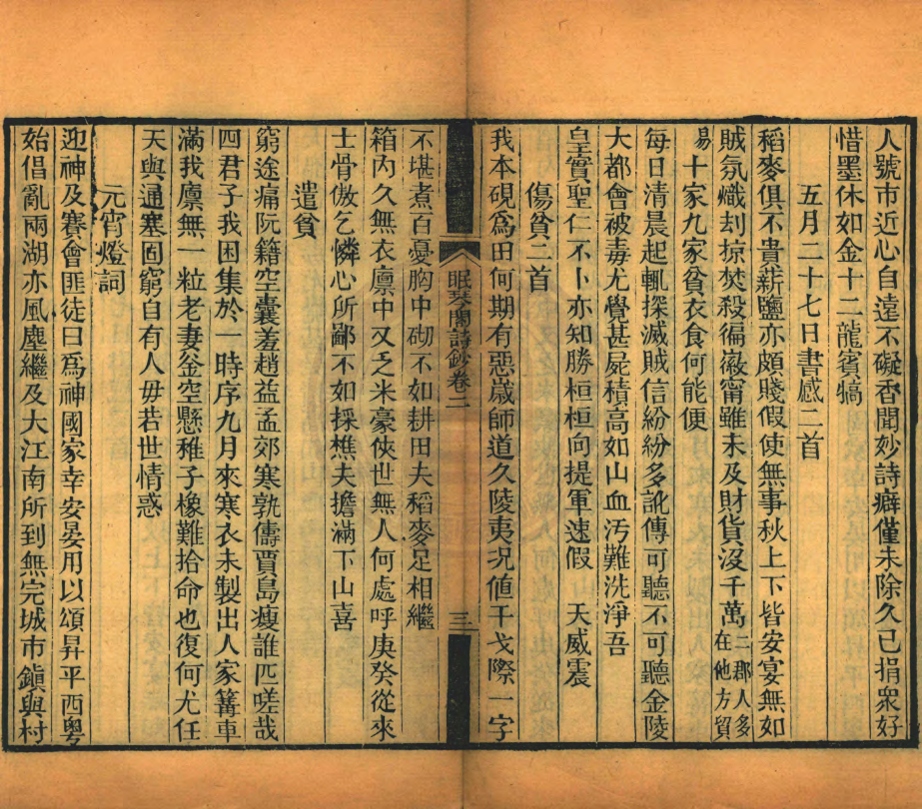 人號市近心自遠不礙香聞妙詩癖僅未除久已捐衆好
惜墨休如金十二龍賓犒
五月二十七日書感二首
稻麥俱不貴薪鹽亦頗賤假使無事秋上下皆安宴無如
賊氛熾刦掠焚殺徧嶶甯雖未及財貨沒千萬二郡人多在他方貿
易十家九家貧衣食何能便
每日清晨起輒探滅賊信紛紛多訛傳可聽不可聽金陵
大都會被毒尤覺甚屍積高如山血汚難洗淨吾
皇實聖仁不卜亦知勝桓桓向提軍速假 天威震
傷貧二首
我本硯爲田何期有惡歲師道久陵夷況値干戈際一字
眠琴閣詩鈔卷二
三
不堪煮百憂胸中砌不如耕田夫稻麥足相繼
箱內久無衣廩中又乏米豪俠世無人何處呼庚癸從來
士骨傲乞憐心所鄙不如採樵夫擔滿下山喜
遣貧
窮途痛阮籍空囊羞趙益孟郊寒孰儔賈島瘦誰匹嗟哉
四君子我困集於一時序九月來寒衣未製出人家篝車
滿我廩無一粒老妻釜空懸稚子橡難拾命也復何尤任
天與通塞固窮自有人毋若世情惑
元宵燈詞
迎神及賽會匪徒曰爲神國家幸安晏用以頌昇平西粵
始倡亂兩湖亦風塵繼及大江南所到無完城市鎭與村